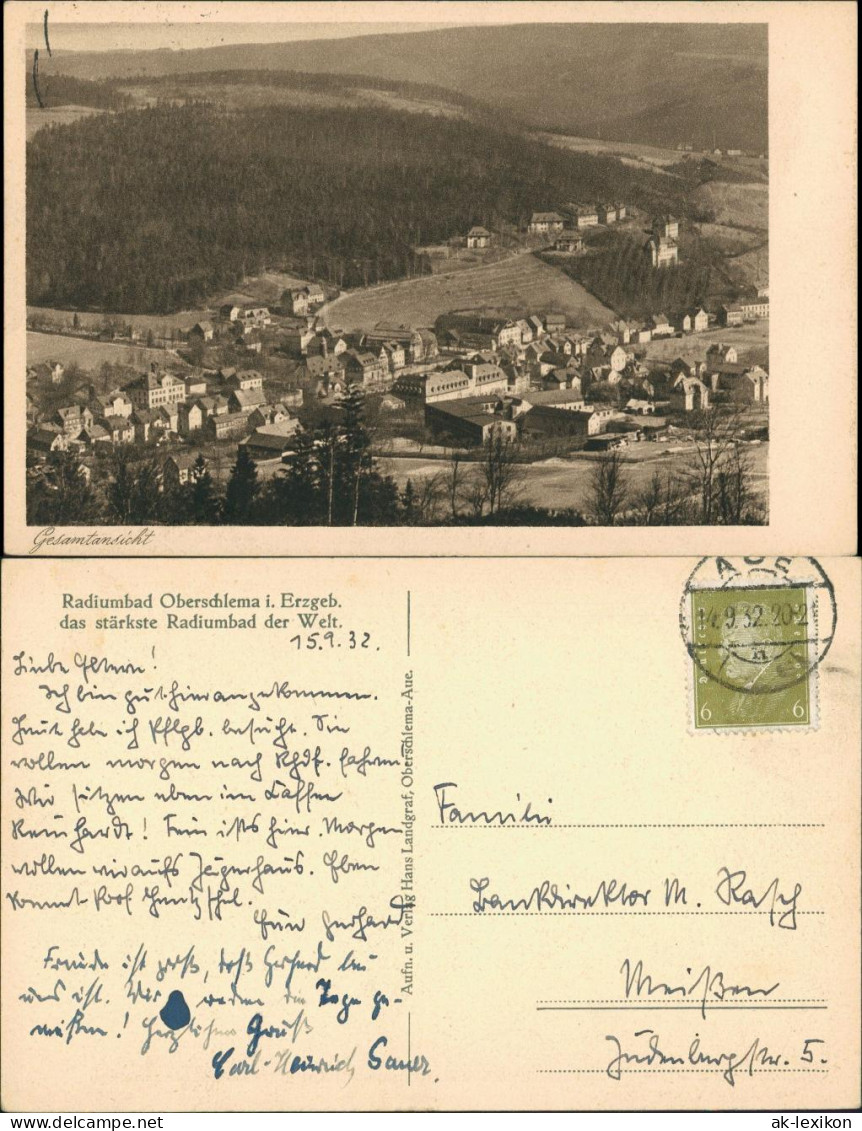 Gesamtansicht
Radiumbad Oberschlema i. Erzgeb.
das stärkste Radiumbad der Welt.
15.9.32.
Liebe Eltern!
Ich bin gut hier angekommen.
Heut habe ich besucht. Sie
wollen morgen nach fahren
Wir sitzen eben im Kaffee
Reinhardt! Fein ists hier. Morgen
wollen wir aufs Jägerhaus. Eben
kommt Prof.
Euer Gerhard
Freude ist groß, daß Gerhard bei
uns ist. Wir werden die Tage ge-
nießen! Herzlichen Gruß
Carl-Heinrich Sauer.
Aufn. u. Verlag Hans Landgraf, Oberschlema-Aue.
AUE
14.9.32.20-2
6 6
Familie
Bankdirektor M. Rasch
Meißen
Judenbergstr. 5.
www.delcampe.net
ak-lexikon